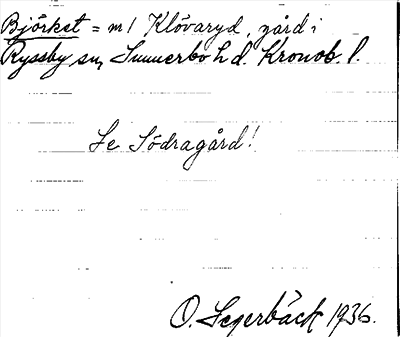 Björket = m1 Klövaryd, gård i
Ryssby sn, Sunnerbo hd. Kronob. l.
Se Södragård!
O. Segerbäck 1936.